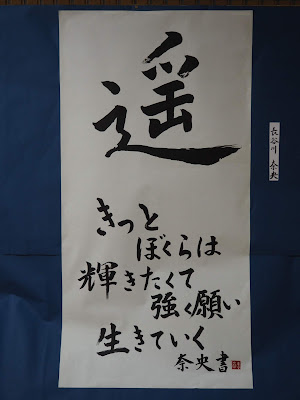 遥
きっと
ぼくらは
輝きたくて
強く願い
生きていく
奈央書
長谷川 奈央